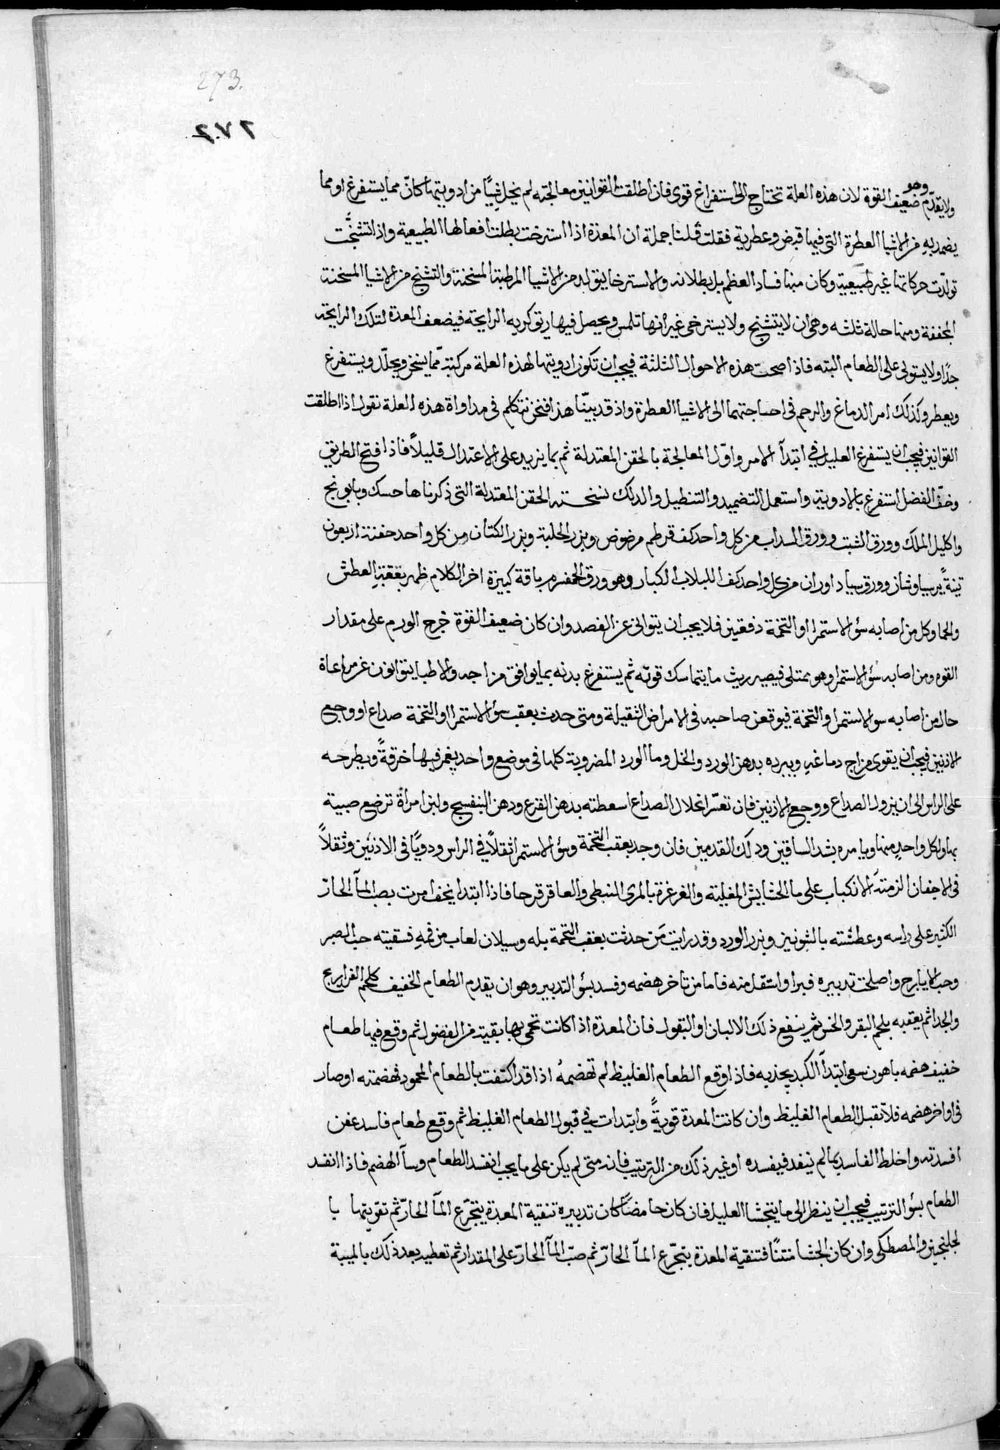 273.
٢٧٢
وهو
ولا يقدم ضعيف القوة لان هذه العلة تحتاج الى استفراغ قوى فان اطلقت القوانين معالجته لم يخل شيئًا من ادويتها كان مما يستفرغ او مما
يضمد به من الاشيا العطرة التى فيها قبض وعطرية فقلت قلنا جملة ان المعدة اذا استرخت بطلت افعالها الطبيعية واذا تشنجت
تولدت حركاتها غير طبيعية وكان منها فساد العظم بل بطلانه والاسترخا يتولد من الاشيا المرطبة المسخنة والتشنج من الاشيا المسخنة
المجففة ومنها حالة ثلثه وهى ان لا يتشنج ولا يسترخى غير انها تلمس ويحصل فيها ريق كريه الرايحة فيضعف المعدة لتلك الرايحة
جدًا ولا يستولى على الطعام البته فاذا صحت هذه الاحوال الثلثة فيجب ان تكون ادويتها لهذه العلة مركبة مما يسخن ويحلل ويستفرغ
ويعطر وكذلك امر الدماغ والرحم فى احتياجهما الى الاشيا العطرة واذ قد بينا هذا فنحن نتكلم فى مداواة هذه العلة نقول اذا اطلقت
القوانين فيجب ان يستفرغ العليل فى ابتدآ الامر واول المعالجة بالحقن المعتدلة ثم بما يزيد على الاعتدال قليلًا فاذا فتح الطريق
وخف الفضل استفرغ بالادوية واستعمل التضميد والتنطيل والدلك نسخة الحقن المعتدلة التى ذكرناها حسك وبابونج
واكليل الملك وورق الشبت وورق السداب من كل واحد كف قرطم مرضوض وبزر الحلبة وبزر الكتان من كل واحد حفنة اربعون
تينةً برسياوشان وورق سياداوران من كل واحد كف اللبلاب الكبار وهو ورق باقة كبيرة اخر الكلام ظهر بعقبة العطش
والحما وكل من اصابه سؤ الاستمرا او التخمة دفعتين فلا يجب ان يتوانى عن الفصد وان كان ضعيف القوة خرج الدم على مقدار
القوه ومن اصابه سؤ الاستمرا وهو ممتلى فيصبر ريث ما يتماسك قوته ثم يستفرغ بدنه بما يوافق مزاجه والاطبا يتوانون عن مراعاة
حال من اصابه سو الاستمرا والتخمة فيوقعن صاحبه فى الامراض الثقيلة ومتى حدث بعقب سؤ الاستمرا او التخمة صداع او وجع
الاذنين فيجب ان يقوى مزاج دماغه ويبرده بدهن الورد والخل وما الورد المضروبة كلها فى موضع واحد يغمر فيها خرقةً ويطرحه
على الراس الى ان يزول الصداع ووجع الاذنين فان تعسر انحلال الصداع اسعطته بدهن القرع ودهن البنفسج ولبن امراة ترضع صبية
بما ولكل واحد منها ويامره بشد الساقين ودلك القدمين فان وجد بعقب التخمة وسؤ الاستمرا ثقلًا فى الراس ودويًا فى الاذنين وثقلًا
فى الاجفان الزمته الانكباب على ما الحشايش المغلية والغرغرة بالمرى النبطى والعاقرقرحا فاذا ابتدا يخف امرت بصب المآ الحار
الكثير على راسه وعطسته بالشونيز وبزر الورد وقد رايت من حدثت بعقب التخمة بله وسيلان لعاب من فمه فسقيته حب الصبر
وحب الايارج واصلحت تدبيره فبرا واستقل منه فاما من تاخر هضمه وفسد بسؤ التدبير وهو ان يقدم الطعام الخفيف كلحم الفراريج
والجدا ثم يعقبه بلحم البقر والخس ثم ينفع ذلك الالبان او البقول فان المعدة اذا كانت نقية من الفضول ثم وقع فيها طعام
خفيف هضمه باهون سعى ابتدآ الكبد يجذبه فاذا وقع الطعام الغليظ لم تهضمهُ اذا قد اكتفت بالطعام المحمود فهضمته او صار
فى اواخر هضمه فلا تقبل الطعام الغليظ وان كانت المعدة قويةً وابتدات فى قبول الطعام الغليظ ثم وقع طعام فاسد عفن
افسدته واختلط الفاسد بما لم ينفد فيفسده او غير ذلك من الترتيب فانه متى لم يكن على ما يجب انفسد الطعام وسآ الهضم فاذا انفسد
الطعام بسؤ الترتيب فيجب ان ينظر الى ما يتجشا العليل فان كان حامضًا كان تدبيره تنقية المعدة بتجرع المآ الحار ثم تقويتها با
لجلنجبين والمصطكى وان كان الجشا منتنًا فتنقية المعدة بتجرع المآ الحار ثم صب المآ الحار على المقدار ثم تعطيه بعد ذلك بالميبة